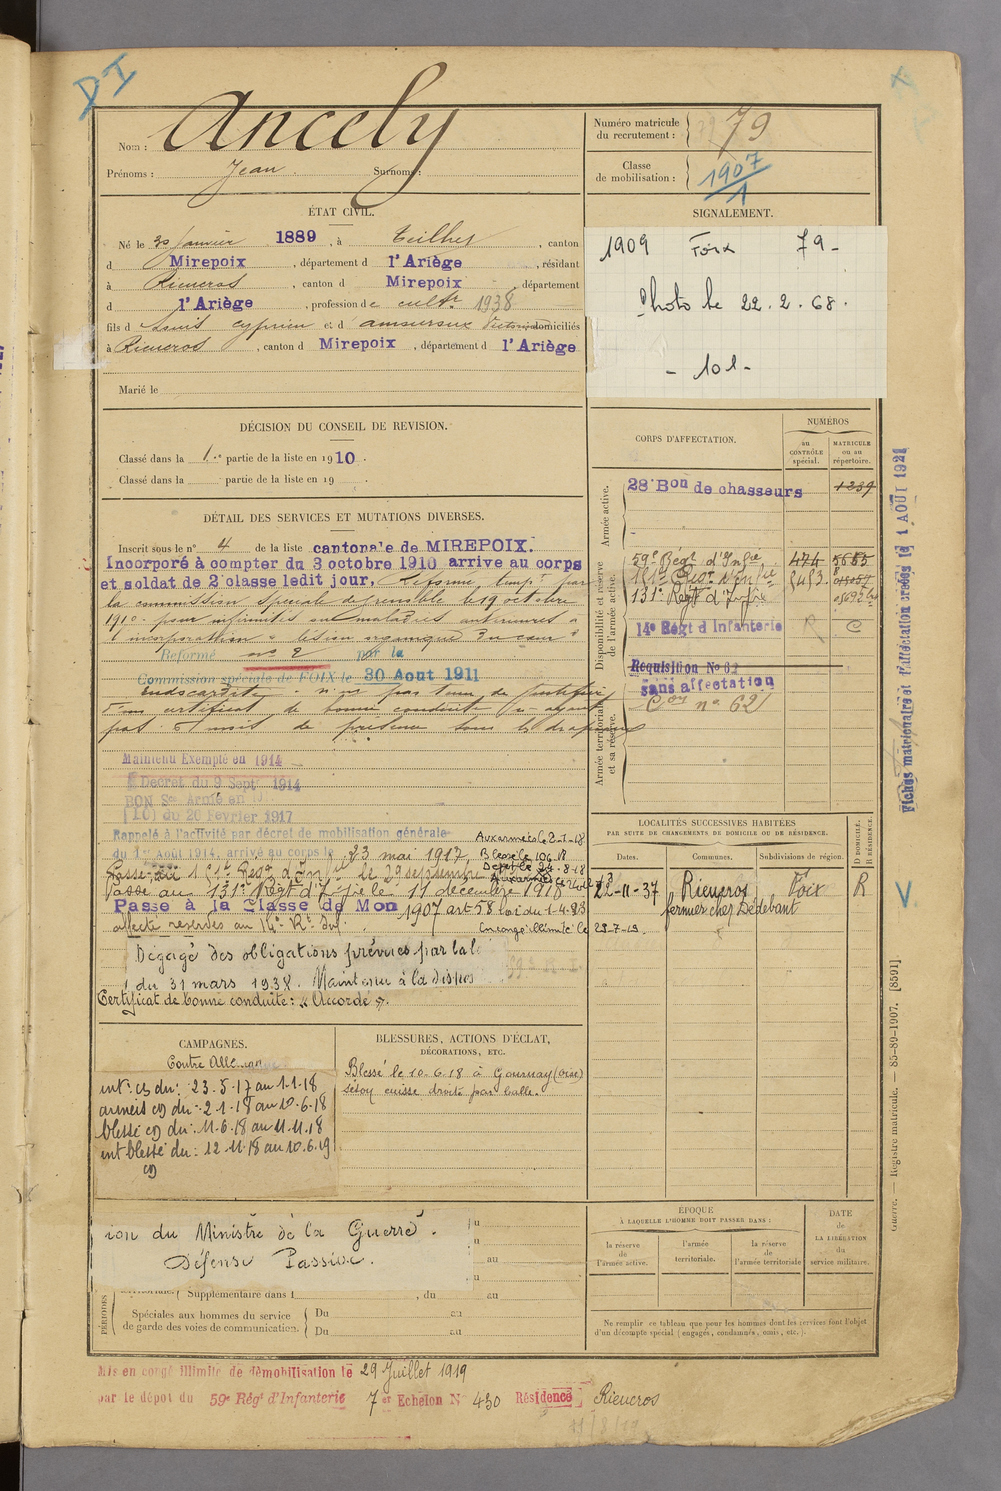 DI
Nom : Ancely
Prénoms : Jean Surnoms :
Numéro matricule du recrutement : 79
Classe de mobilisation : 1907
1
ÉTAT CIVIL.
Né le 30 Janvier 1889, à Teilhet, canton
d Mirepoix, département d l'Ariège, résidant
à Rieucros, canton d Mirepoix, département
d l'Ariège, profession de cultr 1938
fils d Louis Cyprien et d' amoureux Victorine domiciliés
à Rieucros, canton d Mirepoix, département d l'Ariège
Marié le
SIGNALEMENT.
1909 Foix 79-
Photo le 22.2.68.
- 101-
DÉCISION DU CONSEIL DE REVISION.
Classé dans la 1re partie de la liste en 1910.
Classé dans la partie de la liste en 19 .
DÉTAIL DES SERVICES ET MUTATIONS DIVERSES.
Inscrit sous le n° 4 de la liste cantonale de MIREPOIX.
Incorporé à compter du 3 octobre 1910 arrive au corps
et soldat de 2e classe ledit jour, Réformé tempre par
la commission spéciale de grenoble le 19 octobre
1910 pour infirmités ou maladies antérieures à
l'incorporation "lésion organique du cœur"
Réformé no 2 par la
Commission spéciale de FOIX le 30 Aout 1911
Endocardite - n'a pas tenu de
d'un certificat de bonne conduite n'ayant
pas 3 mois de présence sous les drapeaux
Maintenu Exempté en 1914
Décret du 9 Sept 1914
BON Sce Armé en
[10] du 20 Février 1917
Rappelé à l'activité par décret de mobilisation générale
du 1er Août 1914, arrivé au corps le 23 mai 1917,
Aux armées le 2-1-18
Blessé le 10 6 18
Passé au 131e Régt d'Infie le 11 décembre 1918
Passé à la Classe de Mon 1907 art 58 loi du 1-4-23
affecté réserves au 14e Rt Inf
En congé illimité le 29-7-19.
Dégagé des obligations prévues par la l
du 31 mars 1938. Maintenu à la dispos
Certificat de bonne conduite : "Accordé".
CORPS D'AFFECTATION.
NUMÉROS
au CONTRÔLE spécial.
MATRICULE ou au répertoire.
Armée active.
28e Bon de chasseurs 1239
Disponibilité et réserve de l'armée active.
59e Régt d'Infie 474 5655
131e Régt d'Infie
14e Régt d Infanterie R C
Armée territoriale et sa réserve.
Réquisition No 62
sans affectation
Con no 62
LOCALITÉS SUCCESSIVES HABITÉES
PAR SUITE DE CHANGEMENTS DE DOMICILE OU DE RÉSIDENCE.
Dates. Communes. Subdivisions de région. D DOMICILE. R RÉSIDENCE.
22-11-37 Rieucros Foix R
fermier chez Dédebant
CAMPAGNES.
Contre Allemagne
int: cs du: 23.5.17 au 1.1.18
armées cs du: 2.1.18 au 10.6.18
blessé cs du: 11.6.18 au 11.11.18
int blessé du: 12.11.18 au 10.6.19
cs
BLESSURES, ACTIONS D'ÉCLAT,
DÉCORATIONS, ETC.
Blessé le 10.6.18 à Gournay (Oise)
séton cuisse droite par balle.
ion du Ministre de la Guerre.
Défense Passive.
au
PÉRIODES
Supplémentaire dans l , du au
Spéciales aux hommes du service de garde des voies de communication.
Du au
Du au
ÉPOQUE
À LAQUELLE L'HOMME DOIT PASSER DANS :
la réserve de l'armée active.
l'armée territoriale.
la réserve de l'armée territoriale
DATE de LA LIBÉRATION du service militaire.
Ne remplir ce tableau que pour les hommes dont les services font l'objet
d'un décompte spécial (engagés, condamnés, omis, etc.).
Mis en congé illimité de démobilisation le 29 Juillet 1919
par le dépôt du 59e Régt d'Infanterie 7er Echelon N° 430 Résidence Rieucros
Fiches matricules et d'affectation créées le 1 AOÛT 1921
V
Guerre. — Registre matricule. — 85-89-1907. [8591].